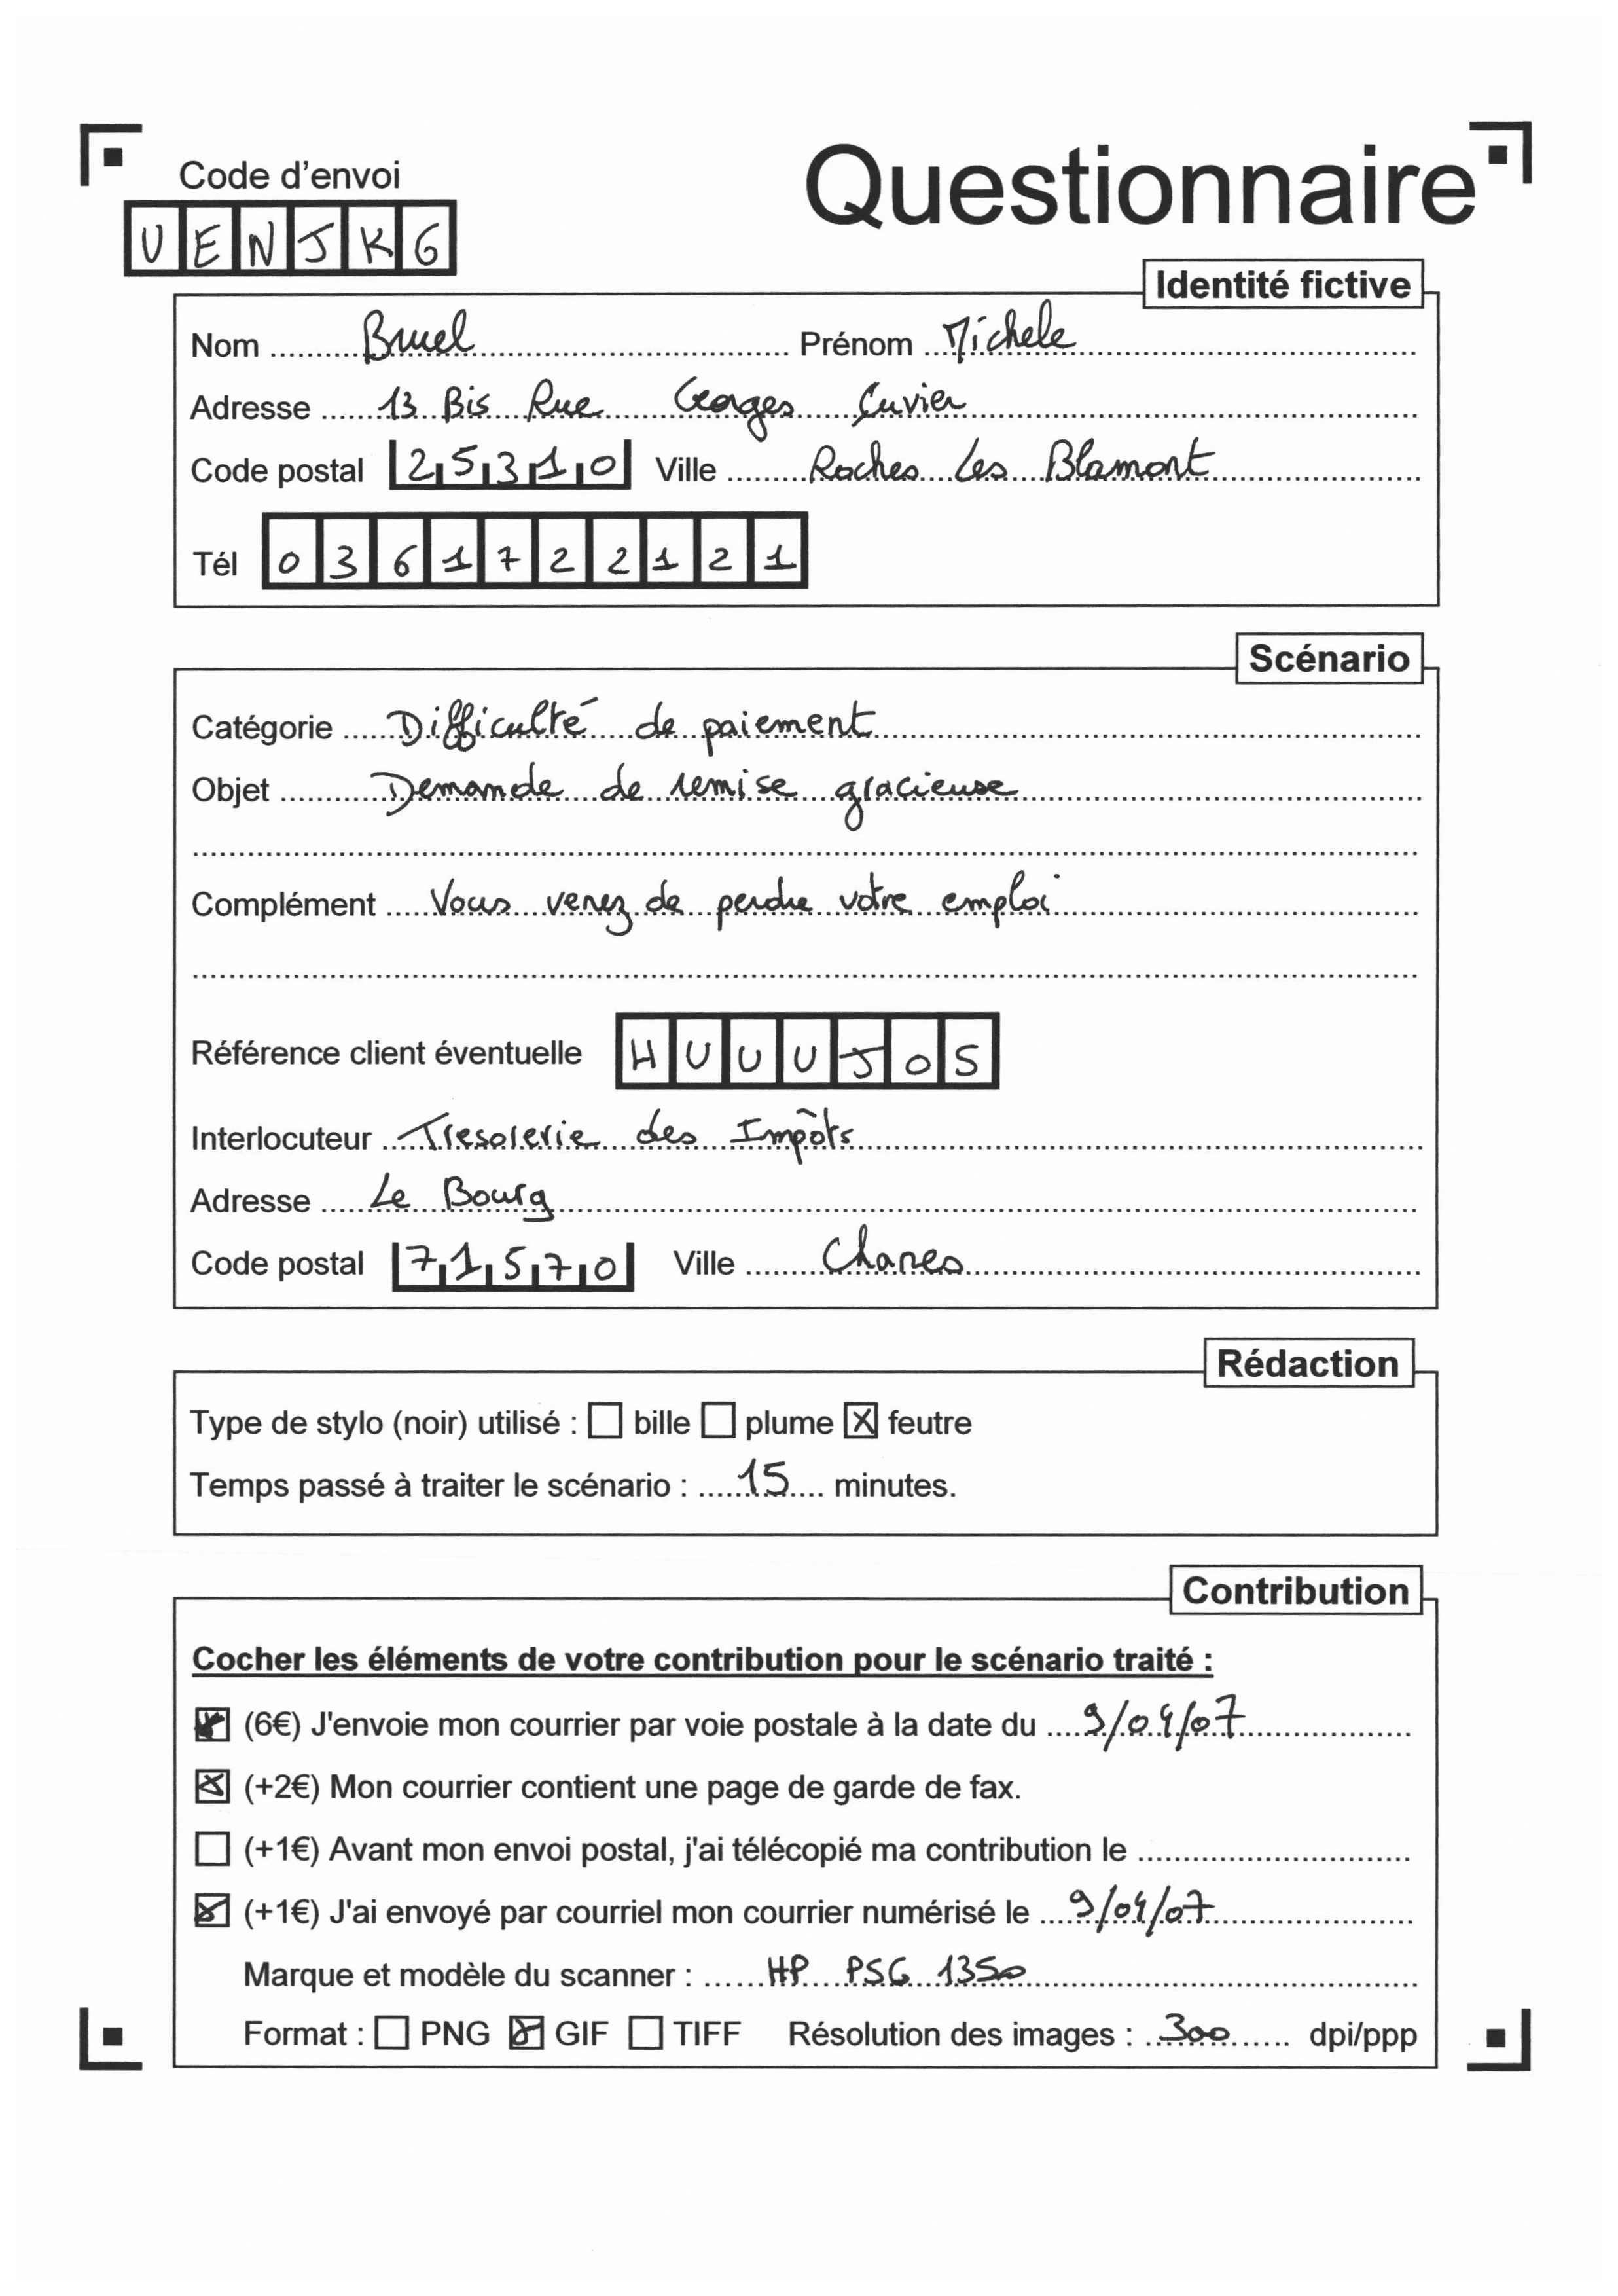 Code d'envoi
Questionnaire
UENJKG
Identité fictive
Nom Bruel Prénom Michele
Adresse 13 Bis Rue Georges Cuvier
Code postal 25310 Ville Roches Les Blamont
Tél 0361722121
Scénario
Catégorie Difficulté de paiement
Objet Demande de remise gracieuse
Complément Vous venez de perdre votre emploi
Référence client éventuelle HUUUJOS
Interlocuteur Tresorerie des Impôts
Adresse Le Bourg
Code postal 71570 Ville Chanes
Rédaction
Type de stylo (noir) utilisé : bille plume feutre
Temps passé à traiter le scénario : 15 minutes.
Contribution
Cocher les éléments de votre contribution pour le scénario traité :
(6€) J'envoie mon courrier par voie postale à la date du 9/04/07
(+2€) Mon courrier contient une page de garde de fax.
(+1€) Avant mon envoi postal, j'ai télécopié ma contribution le
(+1€) J'ai envoyé par courriel mon courrier numérisé le 9/04/07
Marque et modèle du scanner : HP PSG 1350
Format : PNG GIF TIFF Résolution des images : 300 dpi/ppp